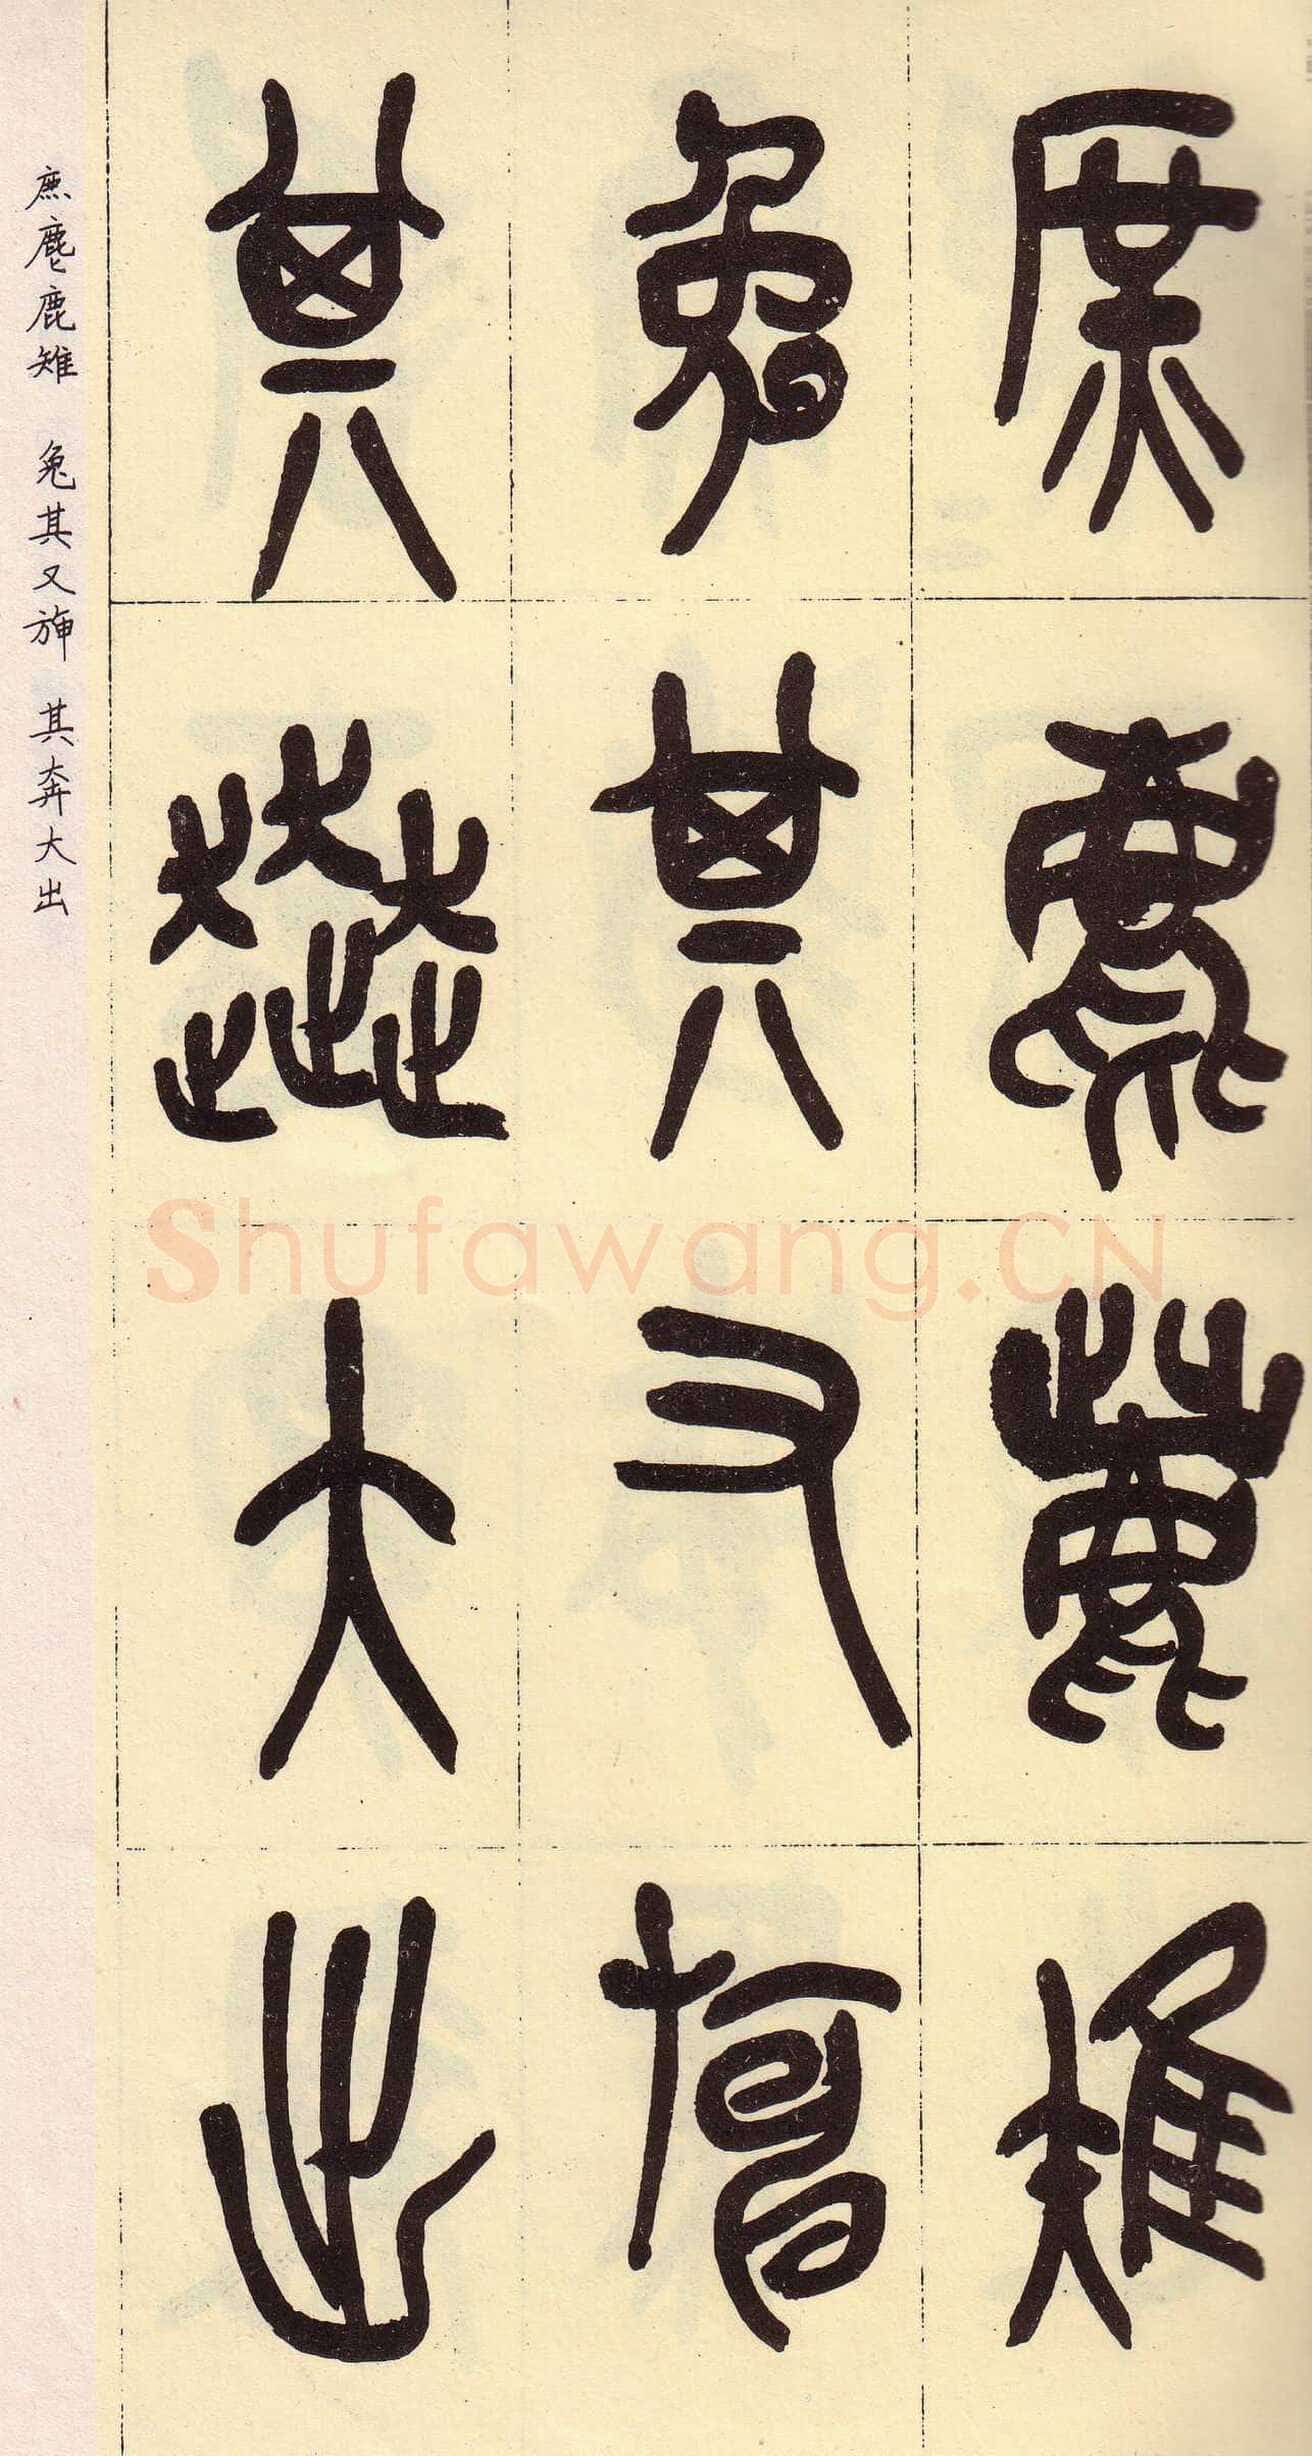 庶麀鹿雉
兔其又
其奔大出
庶麀鹿雉 兔其又 其奔大出
Shufawang.CN